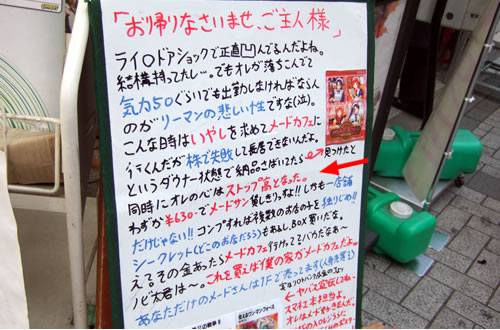 「お帰りなさいませ、ご主人様」
ライ○ドアショックで正直凹んでるんだよね。
結構持ってたし…。でもオレが落ちこんでて
気力50ぐらいでも出勤しなければならん
のがリーマンの悲しい性ですな(泣)。
こんな時はいやしを求めてメードカフェに
行くんだが株で失敗して長居できないんよ。
というダウナー状態で納品さばいてたら見つけたと
同時にオレの心はストップ高となった。
わずか¥630-でメードサン貸しきりっすね!!しかも一店舗
だけじゃない!!コンプすれば複数のお店のキを独りじめ!!
シークレット(どこのお店だろう)もあるし、BOX買いだな。
え?その金あったらメードカフェ行けってバカだなぁ〜
ノビ太君は〜。これを買えば僕の家がメードカフェだよ。
あなただけのメードさんは1Fで売ってます(人身売買?)
スマネェ本担当よ。